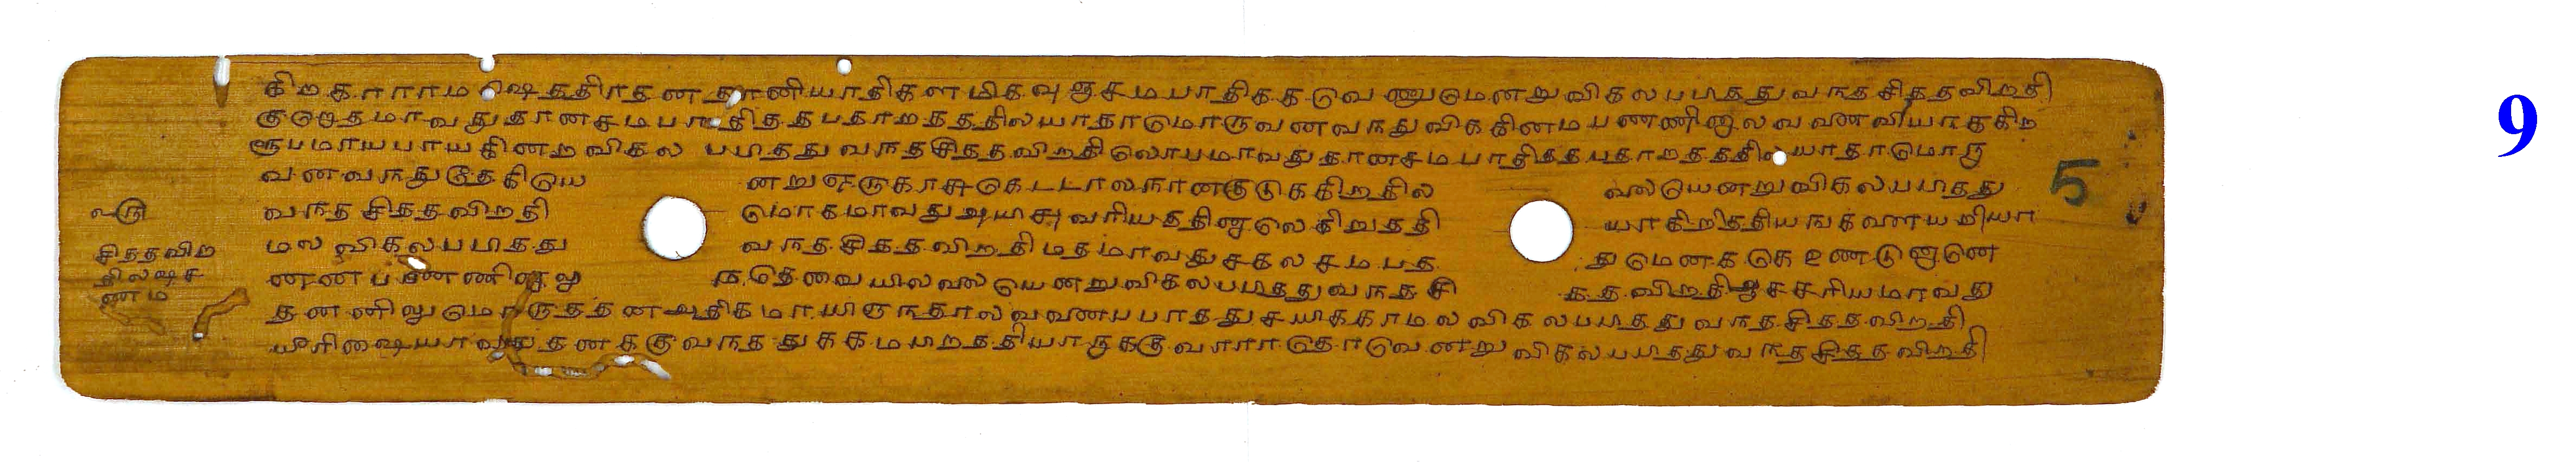 கிறகாராமஷெததிரதனதானியாதிகளமிகவுஞசமபாதிககடவெணுமெனறுவிகலபபிதது வநதசிததவிறதி
குரொதமாவதுதானசமபாதிததபதாறதததிலயாதாமொருவனவநதுவிககினமபணணினாலவவணவியாநகிற
ரூபமாயபாயகினறவிகல பபிதது வநதசிததவிறதி லொபமாவதுதானசமபாதிததபதாறதததிலயாதாமொரு
வனவநதுதெகியெ னறுஒருகாசுகெடடாலநானகுடுககிறதில வலையெனறுவிகலபபிதது
வநத சிததவிறதி மொகமாவதுஷயிசுவரியததினாலெகிறுததி யாகிறிததியஙகவணயறியா
மல விகலபபிதது வநதசிததவிறதி மதமாவதுசகலசமபத துமெனககெ உணடுனானெ
னணபணணினாலு நதெவையிலவலையெனறுவிகலபபிதது வநதசி ததவிறதிஆசசரியமாவது
தனனிலுமொருததனஅதிகமாயிருநதாலவவணபபாததுசயிககாமலவிகலபபிதது வநதசிததவிறதி
யீரிஷையாவதுதனககுவநததுககமபிறததியாருககுவாராதொவெனறு விகலபபிதது வநதசிததவிறதி
வரு
சிததவிற
திலஷச
ணம
5
9